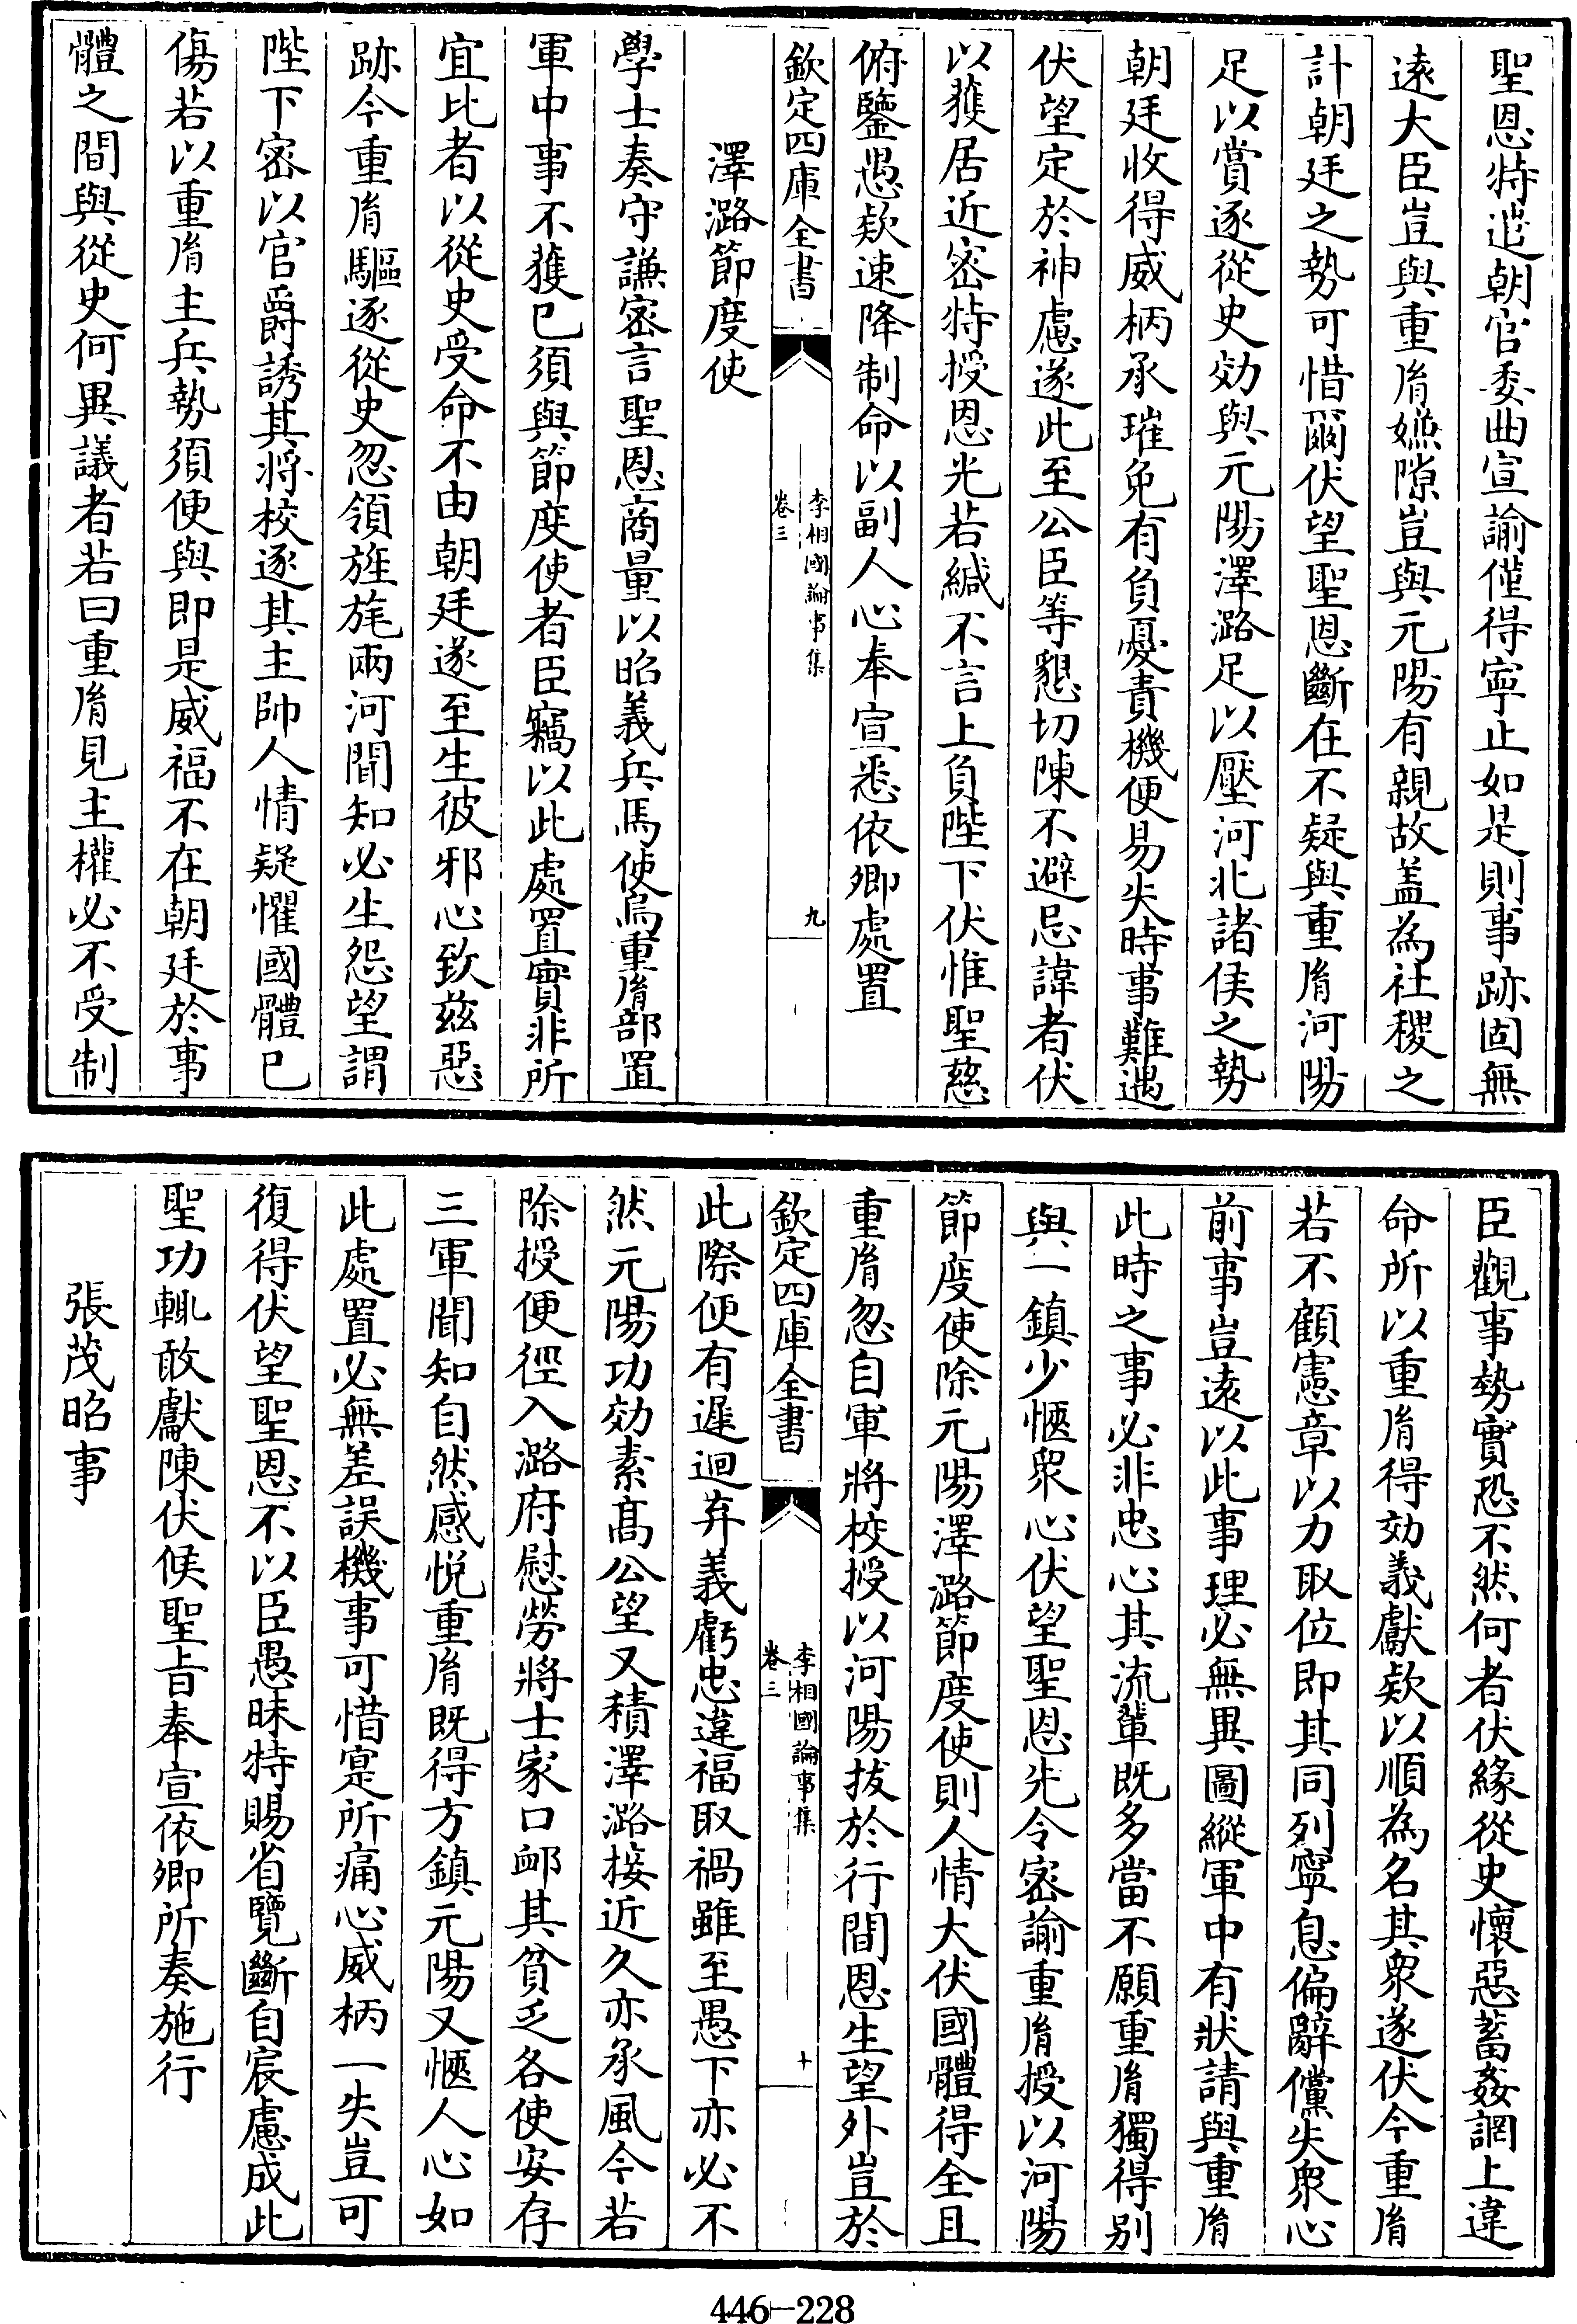 聖恩特遣朝官委曲宣諭僅得寧止如是則事跡固無
逺大臣豈與重𦙍嫌隙豈與元陽有親故盖為社稷之
計朝廷之勢可惜爾伏望聖恩斷在不疑與重𦙍河陽
足以賞逐從史効與元陽澤潞足以壓河北諸侯之勢
朝廷收得威柄承璀免有負憂責機便易失時事難遇
伏望定於神慮遂此至公臣等懇切陳不避忌諱者伏
以獲居近密特授恩光若緘不言上負陛下伏惟聖慈
俯鑒愚欵速降制命以副人心奉宣悉依卿處置
欽定四庫全書
李相國論事集
卷三
九
澤潞節度使
學士奏守謙密言聖恩商量以昭義兵馬使烏重𦙍部置
軍中事不獲已須與節度使者臣竊以此處置實非所
宜比者以從史受命不由朝廷遂至生彼邪心致兹惡
跡今重𦙍驅逐從史忽領旌旄兩河聞知必生怨望謂
陛下密以官爵誘其將校逐其主帥人情疑懼國體已
傷若以重𦙍主兵勢須便與即是威福不在朝廷於事
體之間與從史何異議者若曰重𦙍見主權必不受制
臣觀事勢實恐不然何者伏緣從史懷惡蓄姦罔上違
命所以重𦙍得効義獻欵以順為名其衆遂伏今重𦙍
若不顧憲章以力取位即其同列寧息偏辭儻失衆心
前事豈逺以此事理必無異圖縱軍中有狀請與重𦙍
此時之事必非忠心其流輩既多當不願重𦙍獨得别
與一鎮少愜衆心伏望聖恩先令密諭重𦙍授以河陽
節度使除元陽澤潞節度使則人情大伏國體得全且
重𦙍忽自軍將校授以河陽拔於行間恩生望外豈於
欽定四庫全書
李相國論事集
卷三
十
此際便有遲迴弃義虧忠違福取禍雖至愚下亦必不
然元陽功効素髙公望又積澤潞接近久亦承風今若
除授便徑入潞府慰勞將士家口卹其貧乏各使安存
三軍聞知自然感悦重𦙍既得方鎮元陽又愜人心如
此處置必無差誤機事可惜寔所痛心威柄一失豈可
復得伏望聖恩不以臣愚昧特賜省覽斷自宸慮成此
聖功輒敢獻陳伏候聖㫖奉宣依卿所奏施行
張茂昭事
446-228